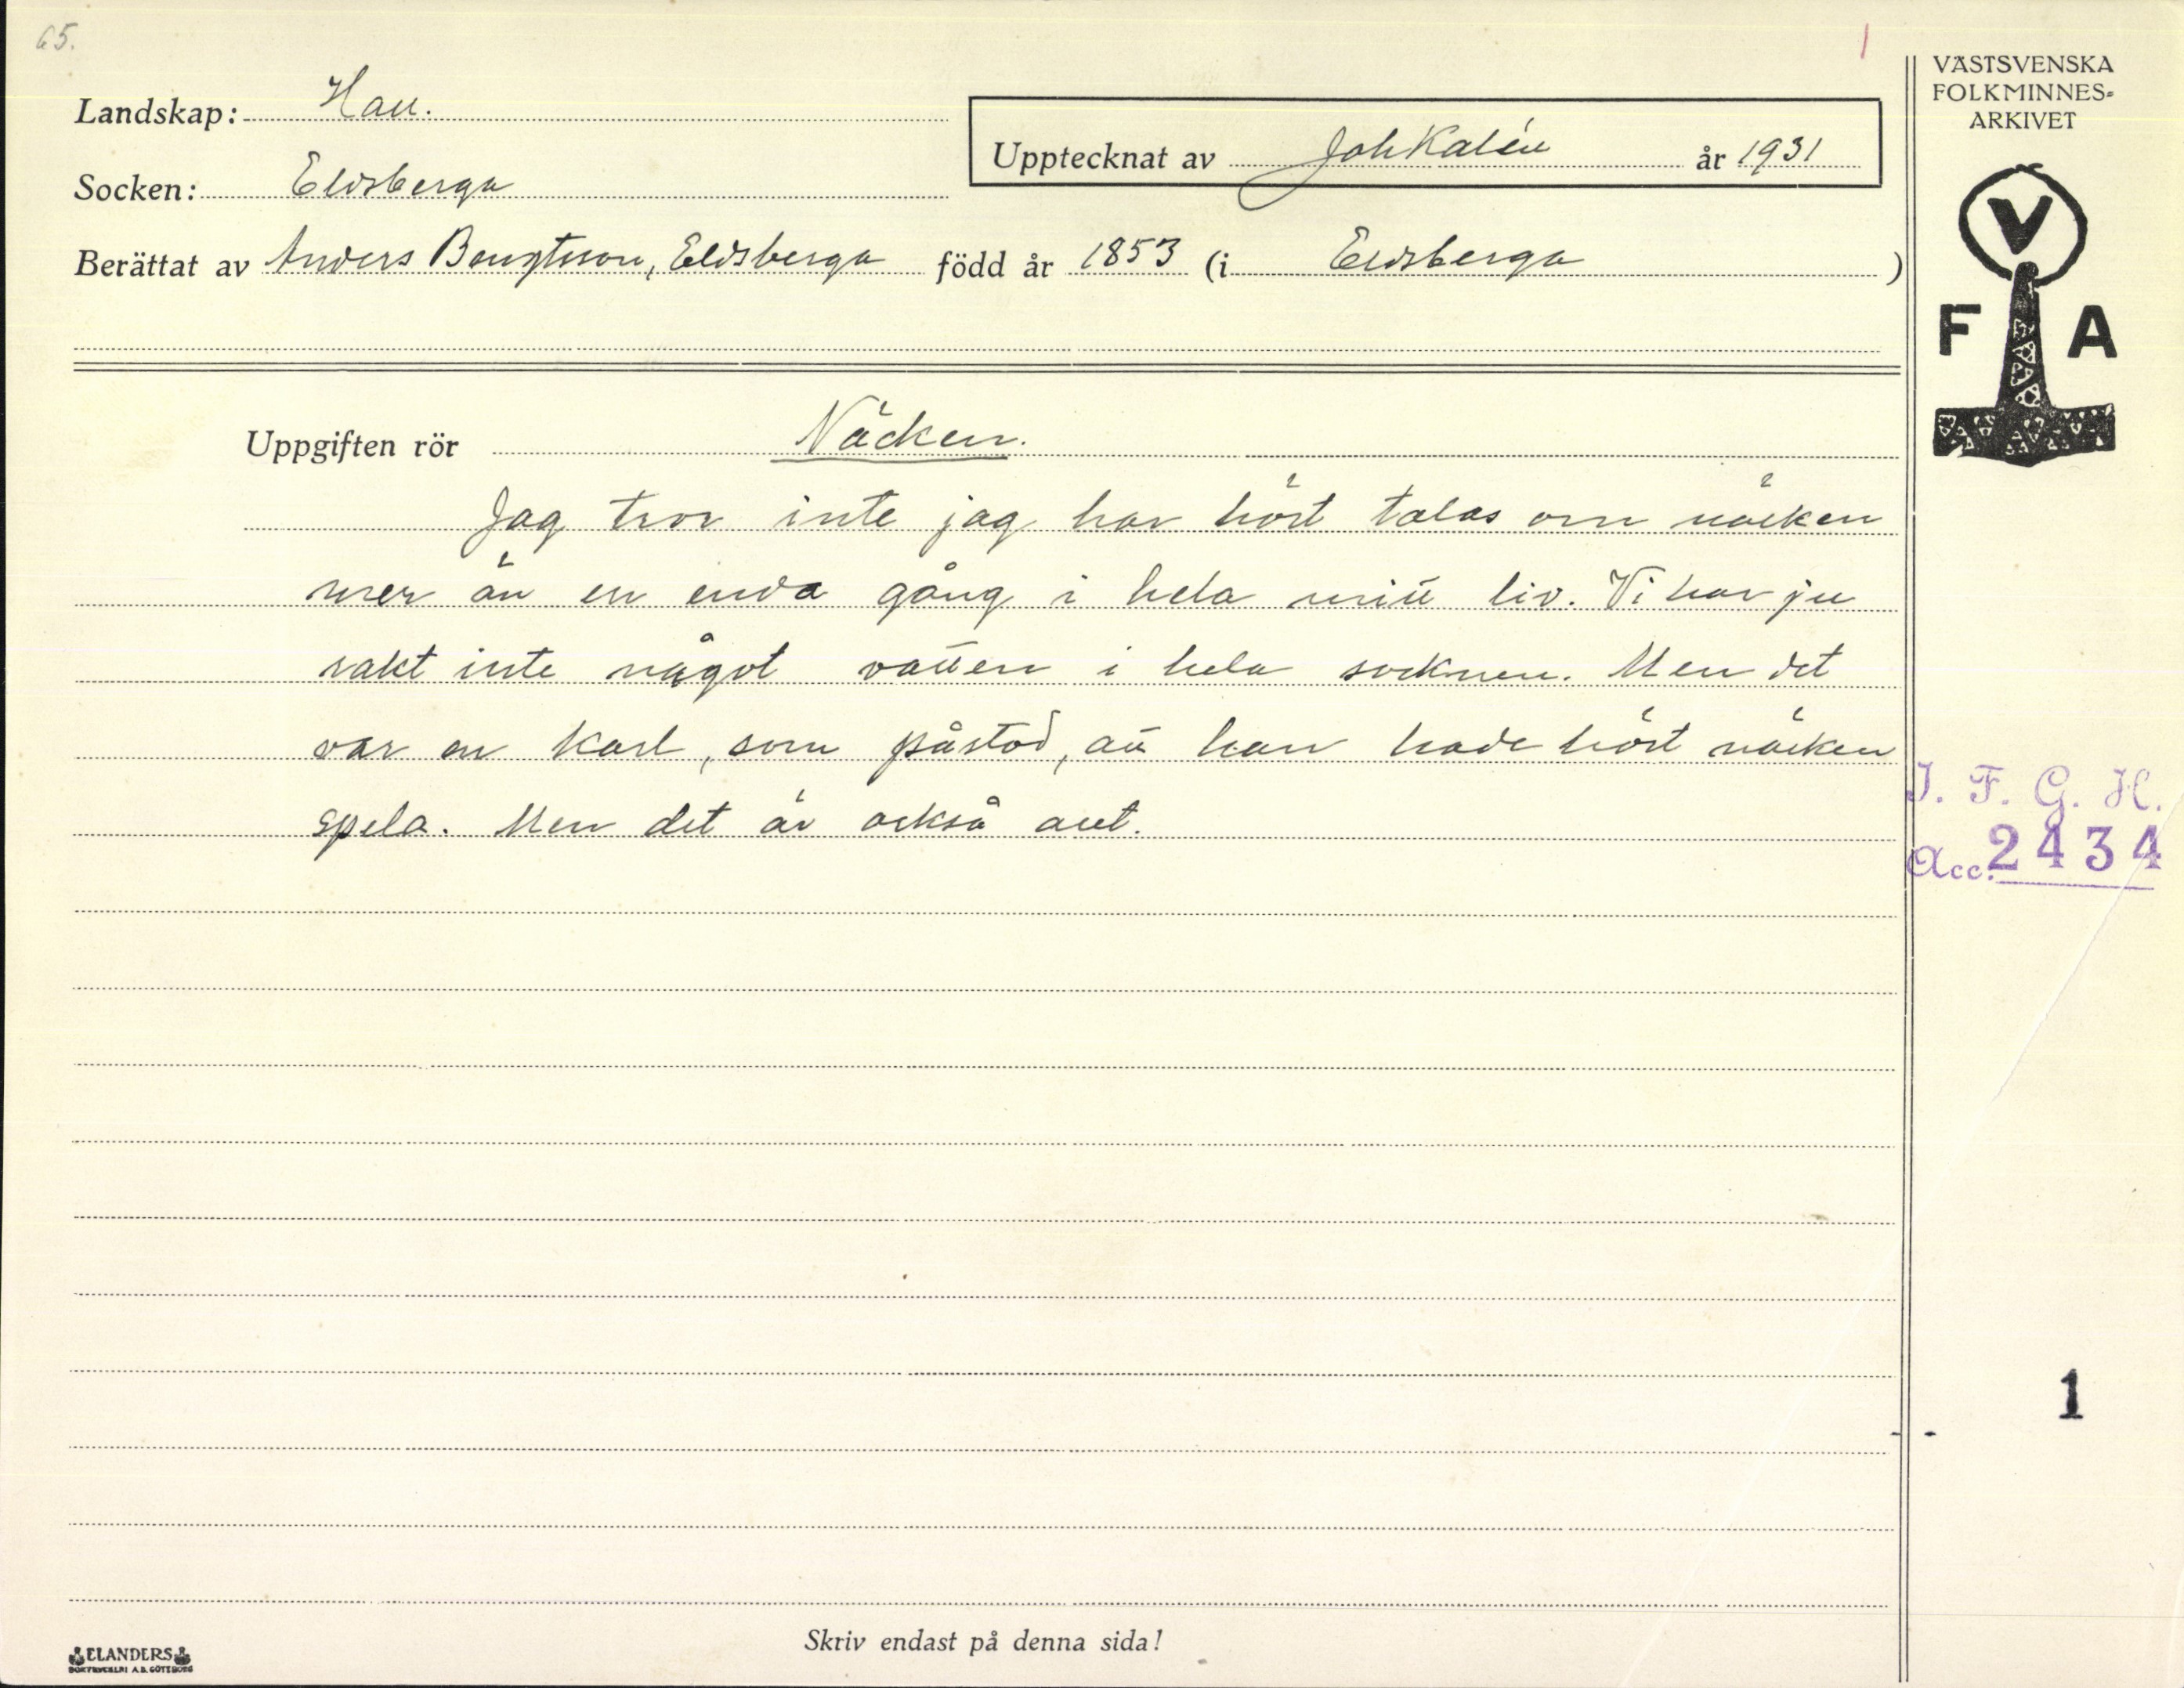 65.
VÄSTSVENSKA
FOLKMINNES-
ARKIVET
Landskap: Hall.
Upptecknat av Joh Kalén år 1931
Socken: Eldsberga
Berättat av Anders Bengtsson, Eldsberga född år 1853 (i Eldsberga )
V
F A
Uppgiften rör Näcken.
Jag tror inte jag har hört talas om näcken
mer än en enda gång i hela mitt liv. Vi har ju
rakt inte något vatten i hela socknen. Men det
var en karl, som påstod, att han hade hört näcken
spela. Men det är också allt.
I. F. G. H.
Acc. 2434
1
Skriv endast på denna sida!
ELANDERS
BOKTRYCKERI A.B. GÖTEBORG